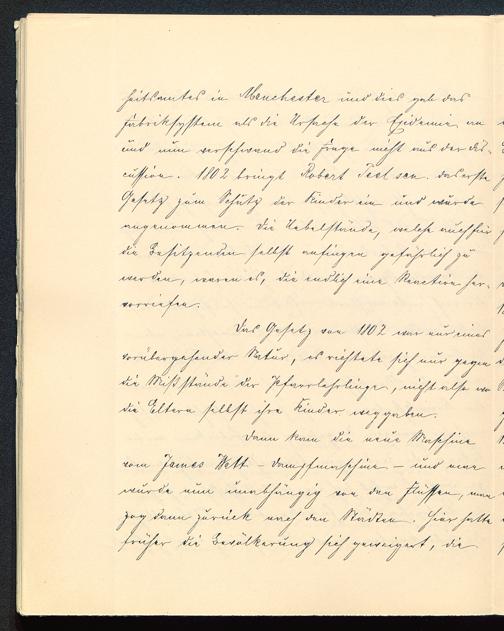 heitsamtes in Manchester und dies gab das
Fabriksystem als die Ursache der Epidemie an
und nun verschwand die Frage nicht aus der Dis-
cussion. 1802 bringt Robert Peel sen. das erste
Gesetz zum Schutz der Kinder ein und wurde
angenommen. Die Uebelstände, welche auch für
die Besitzenden selbst anfingen gefährlich zu
werden, waren es, die endlich eine Reaction her-
vorriefen.
Das Gesetz von 1802 war nur eines
vorübergehender Natur, es richtete sich nur gegen
die Mißstände der Pfarrlehrlinge, nicht also wo
die Eltern selbst ihre Kinder weggaben.
Dann kam die neue Maschine
vom James Watt - Dampfmaschine - und man
wurde nun unabhängig von den Flüssen, man
zog dann zurück nach den Städten. Hier hatte
früher die Bevölkerung sich geweigert, die